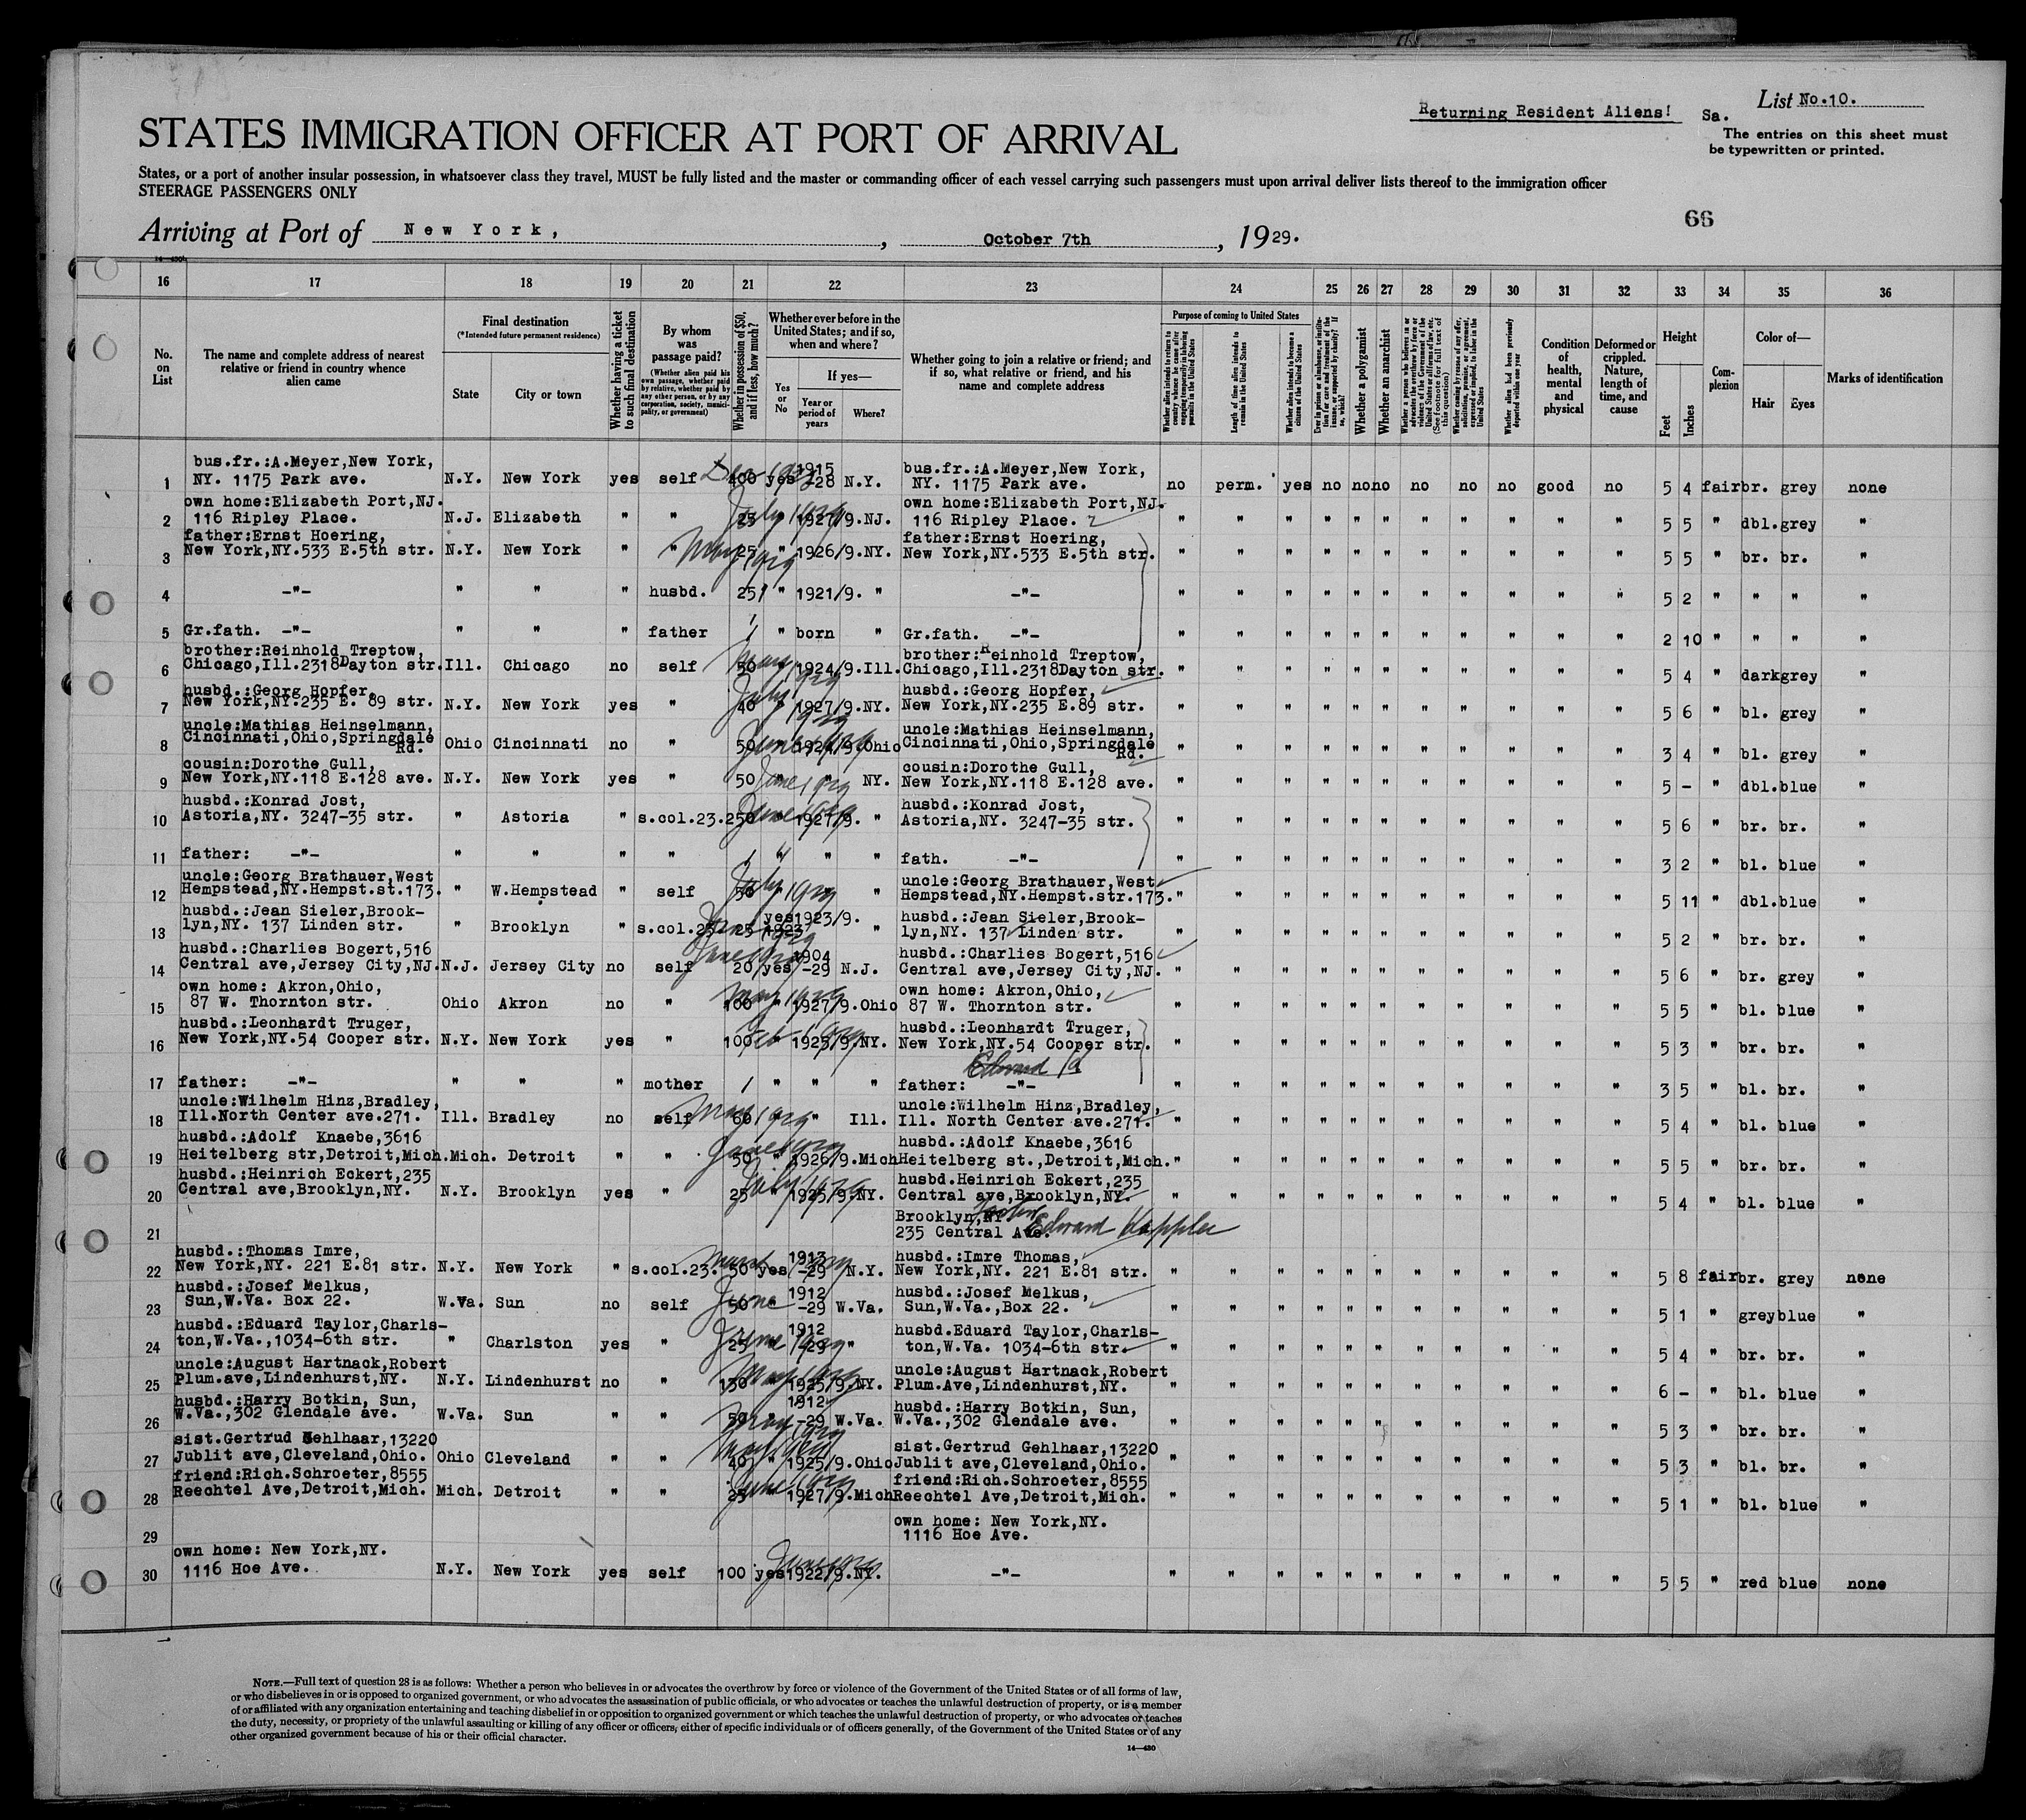 Returning Resident Aliens! Sa. List No.10.
STATES IMMIGRATION OFFICER AT PORT OF ARRIVAL
The entries on this sheet must
be typewritten or printed.
States, or a port of another insular possession, in whatsoever class they travel, MUST be fully listed and the master or commanding officer of each vessel carrying such passengers must upon arrival deliver lists thereof to the immigration officer
STEERAGE PASSENGERS ONLY
66
Arriving at Port of New York, , October 7th , 1929.
14—430
16 17 18 19 20 21 22 23 24 25 26 27 28 29 30 31 32 33 34 35 36
No. on List
The name and complete address of nearest relative or friend in country whence alien came
Final destination
(*Intended future permanent residence)
State City or town
Whether having a ticket to such final destination
By whom was passage paid?
(Whether alien paid his own passage, whether paid by relative, whether paid by any other person, or by any corporation, society, municipality, or government)
Whether in possession of $50, and if less, how much?
Whether ever before in the United States; and if so, when and where?
Yes or No
If yes—
Year or period of years
Where?
Whether going to join a relative or friend; and if so, what relative or friend, and his name and complete address
Purpose of coming to United States
Whether alien intends to return to country whence he came after engaging temporarily in laboring pursuits in the United States
Length of time alien intends to remain in the United States
Whether alien intends to become a citizen of the United States
Whether a polygamist
Whether an anarchist
Whether alien had been previously deported within one year
Condition of health, mental and physical
Deformed or crippled. Nature, length of time, and cause
Height
Feet Inches
Complexion
Color of—
Hair Eyes
Marks of identification
1 bus.fr.:A.Meyer,New York, NY. 1175 Park ave. N.Y. New York yes self 400 yes 1915 -28 N.Y. bus.fr.:A.Meyer,New York, NY. 1175 Park ave. no perm. yes no no no no no no good no 5 4 fair br. grey none
2 own home:Elizabeth Port,NJ. 116 Ripley Place. N.J. Elizabeth " " 25 " 1927/9. NJ. own home:Elizabeth Port,NJ. 116 Ripley Place. " " " " " " " " " " " 5 5 " dbl. grey "
July 1929
3 father:Ernst Hoering, New York,NY.533 E.5th str. N.Y. New York " " 25 " 1926/9. NY. father:Ernst Hoering, New York,NY.533 E.5th str. " " " " " " " " " " " 5 5 " br. br. "
May 1929
4 -"- " " " husbd. 25 " 1921/9. " -"- " " " " " " " " " " " 5 2 " " " "
5 Gr.fath. -"- " " " father " born " Gr.fath. -"- " " " " " " " " " " " 2 10 " " " "
6 brother:Reinhold Treptow, Chicago,Ill.2318Dayton str. Ill. Chicago no self 50 " 1924/9. Ill. brother:Reinhold Treptow, Chicago,Ill.2318Dayton str. " " " " " " " " " " " 5 4 " dark grey "
May 1929
7 husbd.:Georg Hopfer, New York,NY.235 E. 89 str. N.Y. New York yes " 40 " 1927/9. NY. husbd.:Georg Hopfer, New York,NY.235 E.89 str. " " " " " " " " " " " 5 6 " bl. grey "
July 1929
8 uncle:Mathias Heinselmann, Cincinnati,Ohio,Springdale Rd. Ohio Cincinnati no " 50 " 1924/9. Ohio uncle:Mathias Heinselmann, Cincinnati,Ohio,Springdale Rd. " " " " " " " " " " " 3 4 " bl. grey "
June 1929
9 cousin:Dorothe Gull, New York,NY.118 E.128 ave. N.Y. New York yes " 50 " " NY. cousin:Dorothe Gull, New York,NY.118 E.128 ave. " " " " " " " " " " " 5 - " dbl. blue "
June 1929
10 husbd.:Konrad Jost, Astoria,NY. 3247-35 str. " Astoria " s.col.23. 250 " 1927/9. " husbd.:Konrad Jost, Astoria,NY. 3247-35 str. " " " " " " " " " " " 5 6 " br. br. "
June 1929
11 father: -"- " " " " " " " fath. -"- " " " " " " " " " " " 3 2 " bl. blue "
12 uncle:Georg Brathauer,West Hempstead,NY.Hempst.st.173. " W.Hempstead " self 50 " " " uncle:Georg Brathauer,West Hempstead,NY.Hempst.str.173. " " " " " " " " " " " 5 11 " dbl. blue "
July 1929
13 husbd.:Jean Sieler,Brook-lyn,NY. 137 Linden str. " Brooklyn " s.col.23. 25 yes 1923/9. " husbd.:Jean Sieler,Brook-lyn,NY. 137 Linden str. " " " " " " " " " " " 5 2 " br. br. "
14 husbd.:Charlies Bogert,516 Central ave,Jersey City,NJ. N.J. Jersey City no self 20 yes 1904 -29 N.J. husbd.:Charlies Bogert,516 Central ave,Jersey City,NJ. " " " " " " " " " " " 5 6 " br. grey "
June 1929
15 own home: Akron,Ohio, 87 W. Thornton str. Ohio Akron no " 100 " 1927/9. Ohio own home: Akron,Ohio, 87 W. Thornton str. " " " " " " " " " " " 5 5 " bl. blue "
May 1929
16 husbd.:Leonhardt Truger, New York,NY.54 Cooper str. N.Y. New York yes " 100 " 1925/9. NY. husbd.:Leonhardt Truger, New York,NY.54 Cooper str. " " " " " " " " " " " 5 3 " br. br. "
Feb 1929
17 father: -"- " " " mother " " " father: -"- " " " " " " " " " " " 3 5 " bl. br. "
18 uncle:Wilhelm Hinz,Bradley, Ill.North Center ave.271. Ill. Bradley no self 60 " " Ill. uncle:Wilhelm Hinz,Bradley, Ill. North Center ave.271. " " " " " " " " " " " 5 4 " bl. blue "
May 1929
19 husbd.:Adolf Knaebe,3616 Heitelberg str,Detroit,Mich. Mich. Detroit " " 50 " 1926/9. Mich husbd.:Adolf Knaebe,3616 Heitelberg st.,Detroit,Mich. " " " " " " " " " " " 5 5 " br. br. "
June 1929
20 husbd.:Heinrich Eckert,235 Central ave,Brooklyn,NY. N.Y. Brooklyn yes " 25 " 1925/9. NY. husbd.Heinrich Eckert,235 Central ave,Brooklyn,NY. " " " " " " " " " " " 5 4 " bl. blue "
July 1929
21 Brooklyn,NY 235 Central Ave. Edward
22 husbd.:Thomas Imre, New York,NY. 221 E.81 str. N.Y. New York " s.col.23. 50 yes 1913 -29 N.Y. husbd.:Imre Thomas, New York,NY. 221 E.81 str. " " " " " " " " " " " 5 8 fair br. grey none
23 husbd.:Josef Melkus, Sun,W.Va. Box 22. W.Va. Sun no self 50 " 1912 -29 W.Va. husbd.:Josef Melkus, Sun,W.Va.,Box 22. " " " " " " " " " " " 5 1 " grey blue "
June
24 husbd.:Eduard Taylor,Charls-ton,W.Va.,1034-6th str. " Charlston yes " 25 " 1912 -29 " husbd.Eduard Taylor,Charls-ton,W.Va. 1034-6th str. " " " " " " " " " " " 5 4 " br. br. "
June 1929
25 uncle:August Hartnack,Robert Plum.ave,Lindenhurst,NY. N.Y. Lindenhurst no " 130 " 1925/9. NY. uncle:August Hartnack,Robert Plum.Ave,Lindenhurst,NY. " " " " " " " " " " " 6 - " bl. blue "
May 1929
26 husbd.:Harry Botkin, Sun, W.Va.,302 Glendale ave. W.Va. Sun " " 50 " 1912 -29 W.Va. husbd.:Harry Botkin, Sun, W.Va.,302 Glendale ave. " " " " " " " " " " " 5 3 " br. br. "
May 1929
27 sist.Gertrud Gehlhaar,13220 Jublit ave,Cleveland,Ohio. Ohio Cleveland " " 40 " 1925/9. Ohio sist.Gertrud Gehlhaar,13220 Jublit ave,Cleveland,Ohio. " " " " " " " " " " " 5 3 " bl. br. "
28 friend:Rich.Schroeter,8555 Reechtel Ave,Detroit,Mich. Mich. Detroit " " 25 " 1927/9. Mich friend:Rich.Schroeter,8555 Reechtel Ave,Detroit,Mich. " " " " " " " " " " " 5 1 " bl. blue "
June 1929
29 own home: New York,NY. 1116 Hoe Ave.
30 own home: New York,NY. 1116 Hoe Ave. N.Y. New York yes self 100 yes 1922/9. NY. -"- " " " " " " " " " " " 5 5 " red blue none
June 1929
NOTE.—Full text of question 28 is as follows: Whether a person who believes in or advocates the overthrow by force or violence of the Government of the United States or of all forms of law,
or who disbelieves in or is opposed to organized government, or who advocates the assassination of public officials, or who advocates or teaches the unlawful destruction of property, or is a member
of or affiliated with any organization entertaining and teaching disbelief in or opposition to organized government or which teaches the unlawful destruction of property, or who advocates or teaches
the duty, necessity, or propriety of the unlawful assaulting or killing of any officer or officers, either of specific individuals or of officers generally, of the Government of the United States or of any
other organized government because of his or their official character.
14—430